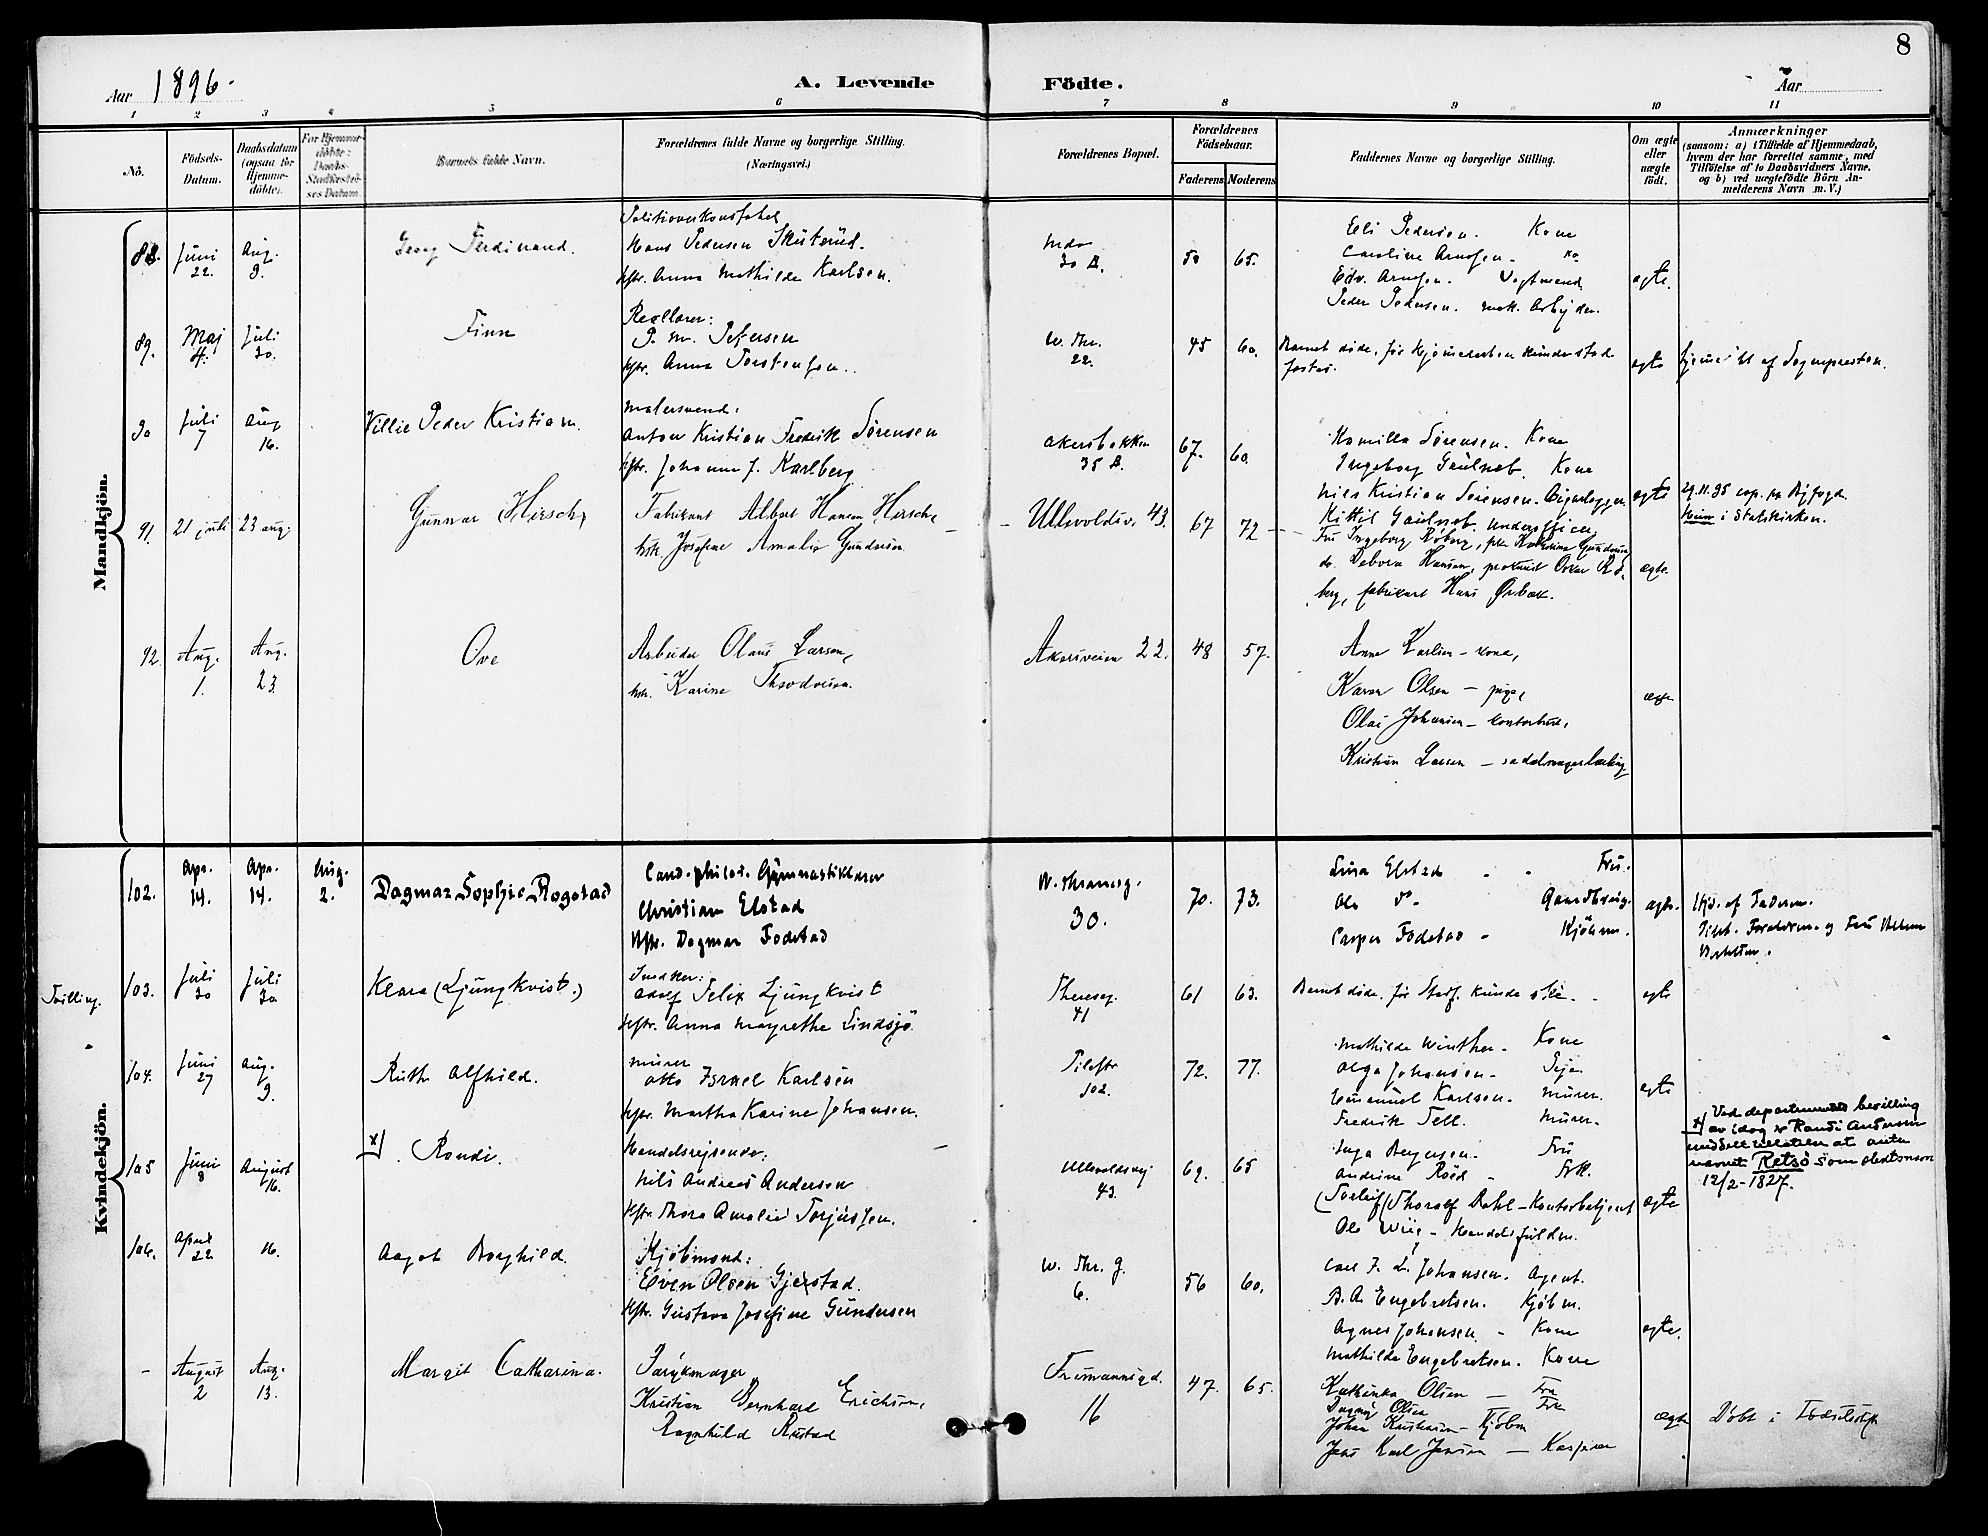 8
Aar 1896.
A. Levende Födte.
Aar
1 2 3 4 5 6 7 8 9 10 11
No.
Födsels-Datum.
Daabsdatum (ogsaa for Hjemme-döbte).
For Hjemme-döbte: Daabs-Stadfæstel-ses Datum.
Barnets fulde Navn.
Forældrenes fulde Navne og borgerlige Stilling. (Næringsvei.)
Forældrenes Bopæl.
Forældrenes Födselsaar.
Faderens Moderens
Faddernes Navne og borgerlige Stilling.
Om ægte eller uægte födt.
Anmærkninger
(saasom: a) i Tilfælde af Hjemmedaab, hvem der har forrettet samme, med Tilföielse af to Daabsvidners Navne. og b) ved uægtefödte Börn Anmelderens Navn m. V.)
Mandkjön.
88. Juni 22. Aug. 9.
Georg Ferdinand.
Politioverkonstabel
Hans Pedersen Skuterud.
Hstr. Anna Mathilde Karlsen.
30 B.
50 65.
Eli Pedersen. Kone
Caroline Arnesen. Ko
Edv. Arnesen. Vægtmand
Peder Pedersen. mek. Arbejder.
egte.
89. Maj 4. Juli 30.
Finn
P. M. Petersen
Hstr. Anna Torstensen.
W. Thr. 22.
45 60.
Barnet døde, før Hjemmedaaben kunde stadfæstes.
egte
Hjemmedøbt af Sognepresten.
90 Juli 7 Aug 16.
Villie Peder Kristian.
Malersvend:
Anton Kristian Fredrik Sörensen
Hstr. Johanne J. Karlberg
Akersbakken 35 B.
67. 60.
Kamilla Sörensen. Kone
Ingeborg Gaulneb. Kone
Nils Kristian Sörensen. Cigarlægger
Kittil Gaulneb. Underofficer
egte
29.11.95 cop. fra Byfogd.
Heim i Statskirken.
91. 21 juli 23 aug.
Gunnar Hirsch,
Fabrikant Albert Hansen Hirsch,
hstr. Josefine Amalie Gundersen.
Ullevoldsv. 43.
67 72
Fru Ingeborg Røberg, frk. Kathrine Gundersen
do. Debora Hansen, prokurist Oskar Rö-
berg, fabrikant Hans Ørbæk.
ægte.
92. Aug. 1. Aug. 23.
Ove
Arbeider Olaus Larsen,
hstr. Karine Theodorsen.
Akersveien 22.
48 57.
Anne Karlsen – kone,
Karen Olsen – pige,
Olai Johansen – kontorbud,
Kristian Larsen – saddelmagerlærling
ægte
Kvindekjön.
102. Apr. 14. Apr. 14. Aug. 2.
Dagmar Sophie Rogstad
Cand. philos. Gymnastiklærer
Christian Elstad
Hstr. Dagmar Fodstad
W. Thranesg. 30.
70. 73.
Lina Elstad Fru.
Ole Do. Gaardbrug.
Casper Fodstad Kjöbm.
egte.
Hjd. af Faderen.
Tvilling.
103. Juli 30 Juli 30
Klara (Ljungkvist.)
Snedker:
Adolf Felix Ljungkvist
Hstr. Anna Magrethe Lindsjö.
Theresesg. 41
61 63.
Barnet døde, før Stadf. kunde ske.
egte
104. Juni 27 Aug. 9.
Ruth Alfhild.
Murer
Otto Israel Karlsen
Hstr. Martha Karine Johansen.
Pilestr. 102.
72. 77.
Mathilde Winther. Kone
Olga Johansen. Pige
Emanuel Karlsen. Murer.
Fredrik Tell. Murer.
egte
105 Juni 8 August 16.
x) Randi.
Handelsrejsende:
Nils Andreas Andersen
Hstr. Thora Amalie Torjussen.
Ullevoldsvej 43.
69. 65
Inga Bergersen. Fru
Andrine Röed Frk.
(Torleif) Thoralf Dahl – Kontorbetjent
Ole Wiig – Handelsfuldm.
egte
x) Ved departementets bevilling
av idag er Randi Andersen
meddelt tillatelse at anta
navnet Retsö som slektsnavn
12/2 - 1827.
106. April 22 16.
Aagot Borghild.
Kjöbmand:
Even Olsen Gjerstad.
Hstr. Gustava Josefine Gundersen
W. Thr. g. 6.
56 60.
Carl F. L. Johansen. Agent.
B. A. Engebretsen. Kjöbm.
Agnes Johansen. Kone
Mathilde Engebretsen. Kone
egte.
– August 2 Aug. 13.
Margit Catharina.
Kristian Bernhard Erichsen,
Ragnhild Rustad
Frimannsgd. 16
47. 65.
Kathinka Olsen – Fru
Dagny Olsen Frk
Johan Kristiansen – Kjöbm
Jens Karl Jensen – Kasserer
ægte
Döbt i Födselsstift.